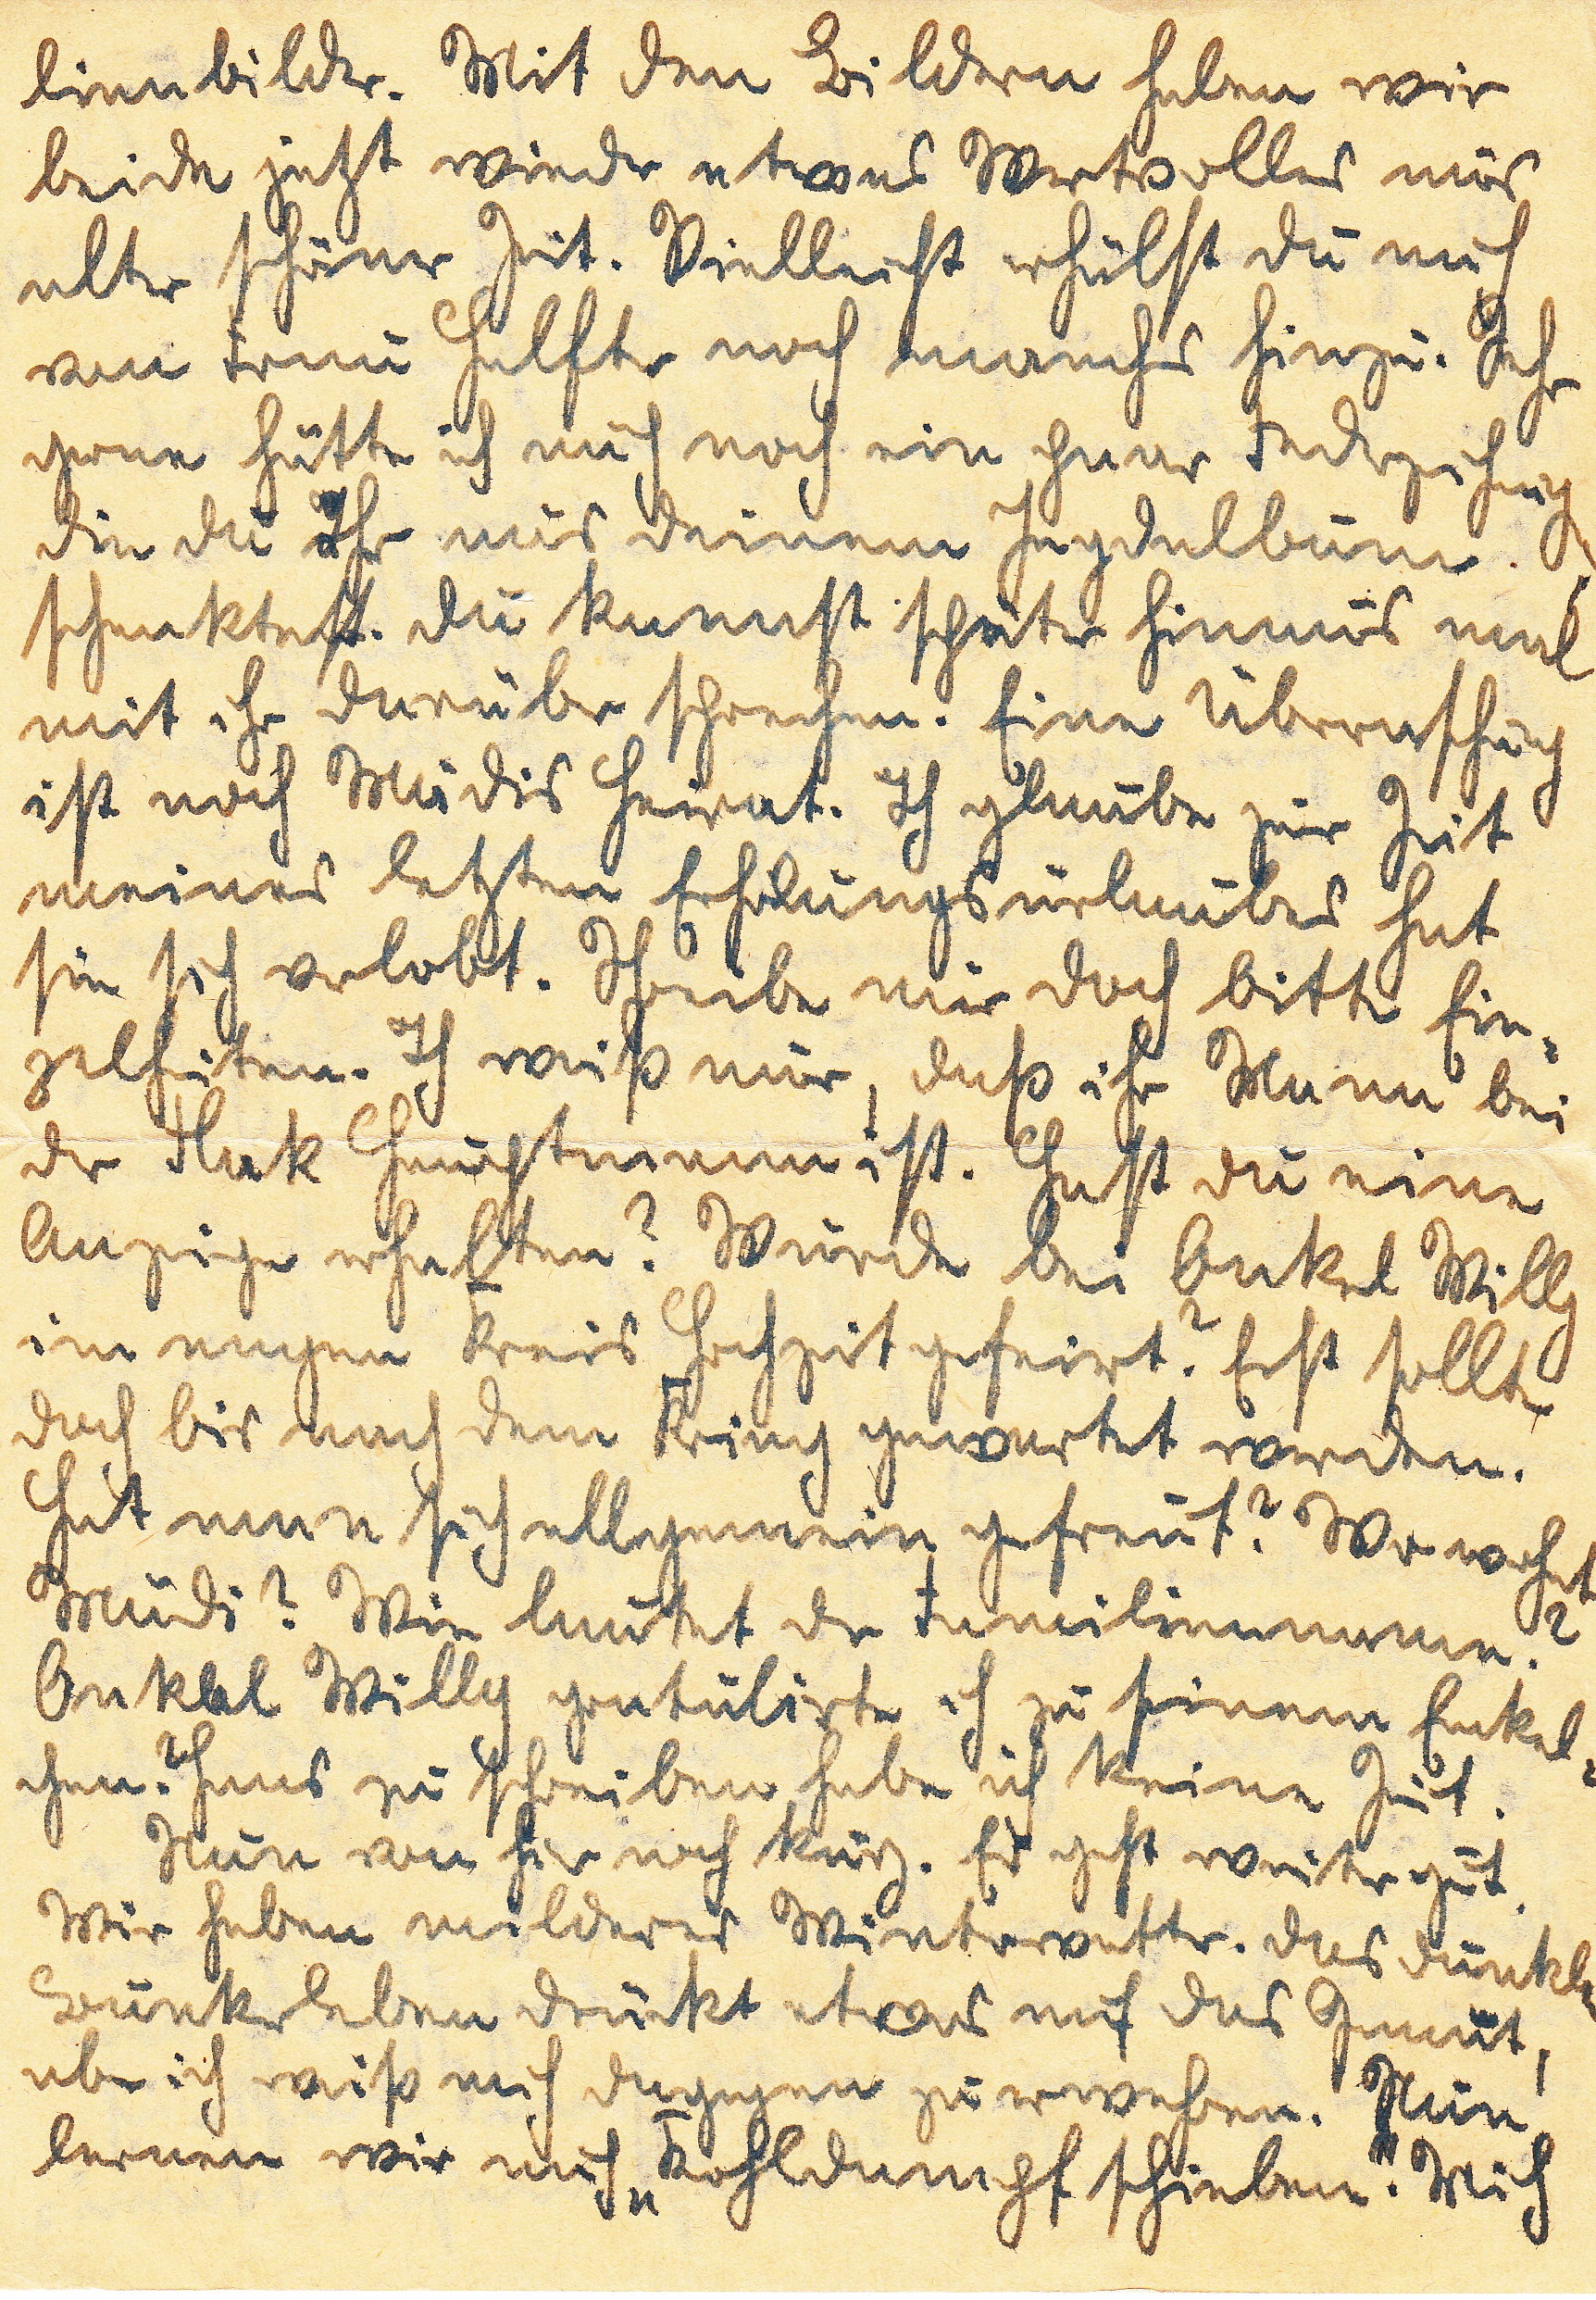 lienbilder. Mit den Bildern haben wir
beide jetzt wieder etwas Wertvolles aus
alter schöner Zeit. Vielleicht erhälst du auch
von Frau Halfter noch manches hinzu. Sehr
gerne hätte ich auch noch ein paar Federzeichnung
die du Ihr aus deinem Jagdalbum.
schenktest. Du kannst später hinaus mal
mit ihr darüber sprechen. Eine Überraschung
ist noch Mädis Heirat. Ich glaube zur Zeit
meines letzten Erholungsurlaubes hat
sie sich verlobt. Schreibe mir doch bitte Ein-
zelheiten. Ich weiß nur, daß ihr Mann bei
der Flak Hauptmann ist. Hast du eine
Anzeige erhalten? Wurde bei Onkel Willy
im engen Kreis Hochzeit gefeiert? Erst sollte
doch bis nach dem Krieg gewartet werden.
Hat man sich allgemein gefreut? Wo wohnt
Mädi? Wie lautet der Familienname?
Onkel Willy gratulirte ich zu seinem Enkel-
chen. Hans zu schreiben habe ich keine Zeit.
Nun von hier noch kurz. Es geht weiter gut.
Wir haben milderes Winterwetter. Das dunkle
Bunkerleben drückt etwas auf das Gemüt,
aber ich weiß mich dagegen zu erwehren. Nun
lernen wir auch „Kohldampf schieben". Mich